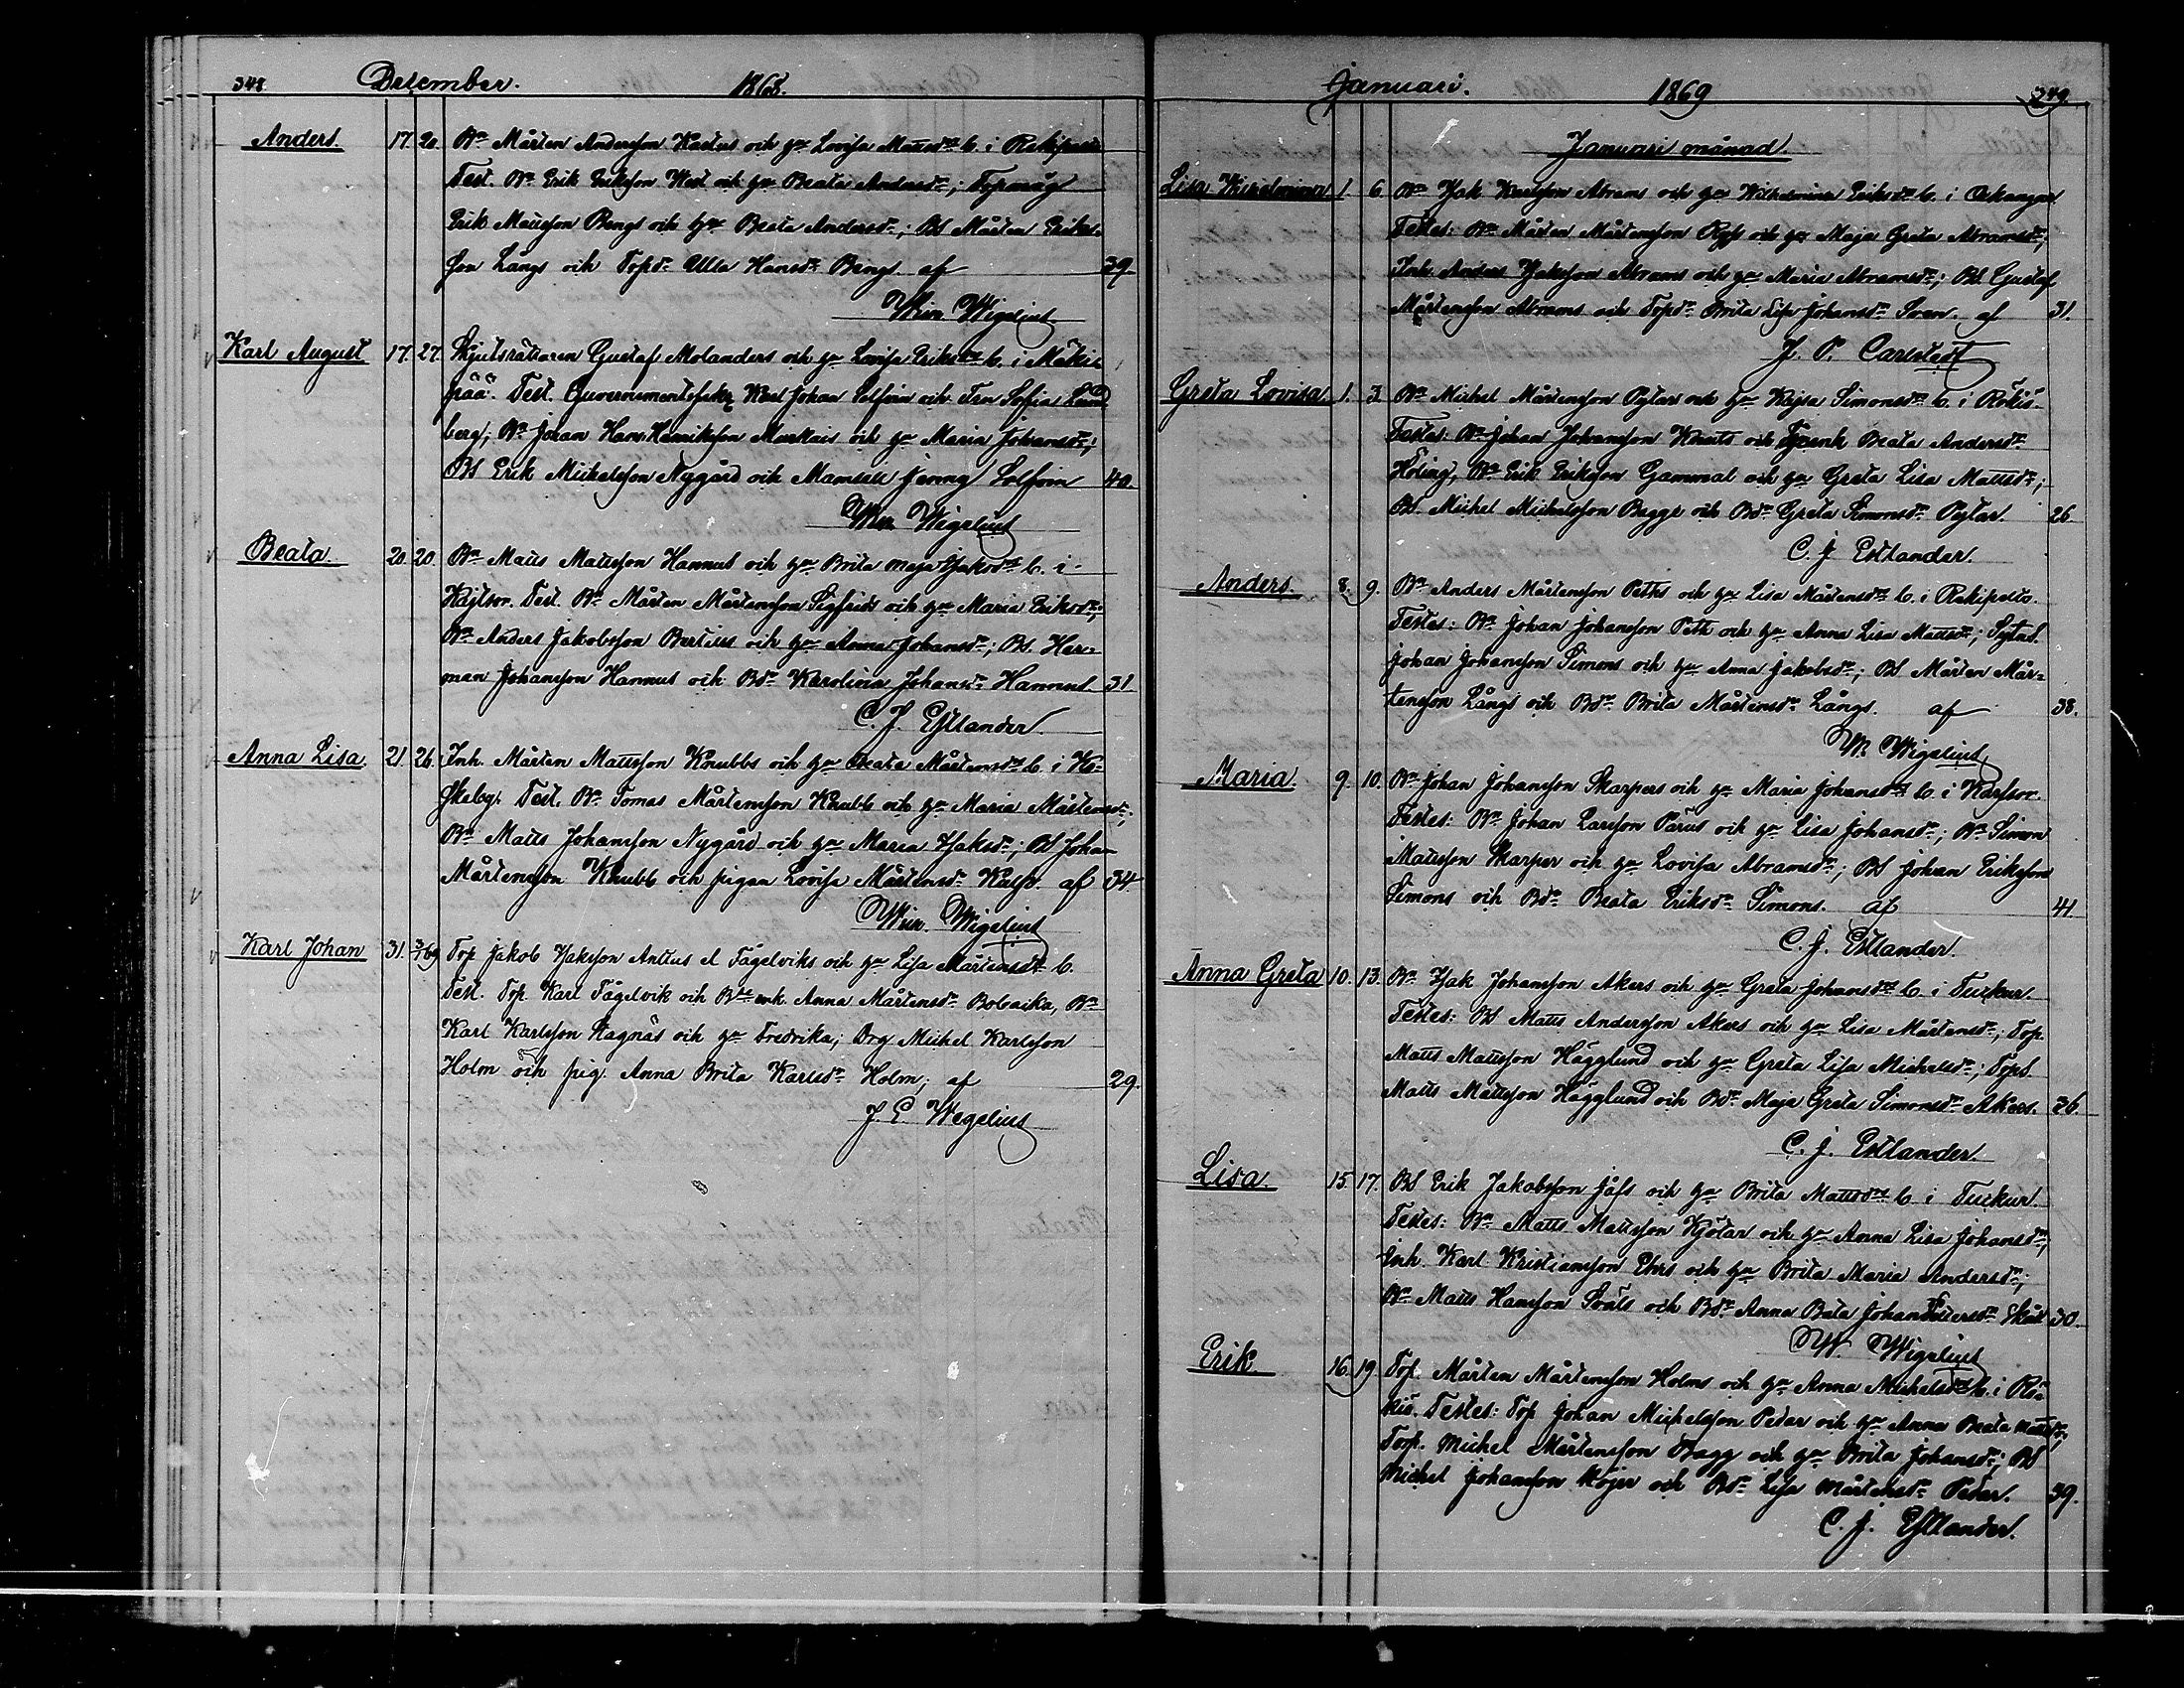 348 December. 1868.
Anders. 17. 20. Bn Mårten Andersson Kastus och hu Lovisa Mattsdr b. i Rekipelto
Test. Bn Erik Eriksson West och hu Beata Andersdr; Torpmåg
Erik Mattsson Bengs och hu Beata Andersdr; Bs Mårten Eriks-
son Långs och Topdr Ulla Hansdr Bengs af 39.
Wm. Wigelius
Karl August 17. 27. Skjutsrättaren Gustaf Molanders och hu Lovisa Eriksdr b. i Mäki-
pää. Test. Guvernementssekr Karl Johan Solfvin och Fru Sofia Lund
berg; Bn Johan Hans Henriksson Markais och hu Maria Johansdr;
Bs Erik Michelsson Nygård och Mamsell Jenny Solfvin 40.
Wm Wigelius
Beata. 20. 20. Bn Matts Mattsson Hannus och hu Brita Maja Isaksdr b. i
Kajtsor. Test. Bn Mårten Mårtensson Sigfrids och hu Maria Eriksdr;
Bn Anders Jakobsson Bertils och hu Anna Johansdr; Bs. Her-
man Johansson Hannus och Bdr Karolina Johansdr Hannus 31
C. J. Estlander.
Anna Lisa 21. 26. Inh. Mårten Mattsson Knubbs och hu Beata Mårtensdr b. i Ko-
skeby. Test. Bn Tomas Mårtensson Knubb och hu Maria Mårtensdr;
Bn Matts Johansson Nygård och hu Maria Isaksdr; Bs Johan
Mårtensson Knubb och pigan Lovisa Mårtensdr Kalps. af 34
Wm. Wigelius
Karl Johan 31. 3/1 69 Top Jakob Isaksson Anttus el Fågelviks och hu Lisa Mårtensdr b.
Test. Top. Karl Fågelvik och Bde enk. Anna Mårtensdr, Bn
Karl Karlsson Stagnäs och hu Fredrika; Drg Michel Karlsson
Holm och pig. Anna Brita Karlsdr Holm; af 29.
J. E. Wegelius
Januari. 1869 349.
Januari månad.
Lisa Wilhelmina 1. 6. Bn Isak Knutsson Abrams och hu Wilhelmina Eriksdr b. i Oskangar
Testes: Bn Mårten Mårtensson Ryss och hu Maja Greta Abramsdr;
Inh. Anders Isaksson Abrams och hu Maria Abramsdr; Bs. Gustaf
Mårtensson Abrams och Topdr Brita Lisa Johansdr Sven. af 31.
J. P. Carlstedt
Greta Lovisa 1. 3. Bn Michel Mårtensson Pytar och hu Kajsa Simonsdr b. i Rökiö.
Testes: Bn Johan Johansson Knuts och enk Beata Andersdr
Höling, Bn Erik Eriksson Gammal och hu Greta Lisa Mattsdr;
Bs. Michel Michelsson Bagge och Bdr Greta Simonsdr Pytar. 26
C. J. Estlander.
Anders. 8. 9. Bn Anders Mårtensson Peths och hu Lisa Mårtensdr b. i Rekipelto.
Testes: Bn Johan Johansson Peth och hu Anna Lisa Mattsdr; Sytnd.
Johan Johansson Simons och hu Anna Jakobsdr; Bs Mårten Mår-
tensson Långs och Bdr Brita Mårtensdr Långs. af 38.
W. Wigelius
Maria. 9. 10. Bn Johan Johansson Skarpers och hu Maria Johansdr b. i Karfsor.
Testes: Bn Johan Larsson Pärus och hu Lisa Johansdr; Bn Simon
Mattsson Skarper och hu Lovisa Abramsdr; Bs Johan Eriksson
Simons och Bdr Beata Eriksdr Simons. af 41.
C. J. Estlander.
Anna Greta 10. 13. Bn Isak Johansson Akers och hu Greta Johansdr b. i Tuckur.
Testes: Bs Matts Andersson Akers och hu Lisa Mårtensdr; Top.
Matts Mattsson Hägglund och hu Greta Lisa Michelsdr; Tops.
Matts Mattsson Hägglund och Bdr Maja Greta Simonsdr Akers. 26.
C. J. Estlander.
Lisa. 15. 17. Bs Erik Jakobsson Jåfs och hu Brita Mattsdr b. i Tuckur.
Testes: Bn Matts Mattsson Kjötar och hu Anna Lisa Johansdr;
Inh. Karl Kristiansson Ehrs och hu Brita Maria Andersdr;
Bn Matts Hansson och Bdr Anna Beata Johan Pettersdr 30.
W. Wigelius
Erik. 16. 19. Top. Mårten Mårtensson Holms och hu Anna Michelsdr b. i Rö-
kiö. Testes: Top Johan Michelsson Pedar och hu Anna Beata Mattsdr,
Torp. Michel Mårtensson Bagg och hu Brita Johansdr; Bs
Michel Johansson Höjer och Bdr Lisa Mårtensdr Pedar. 39.
C. J. Estlander.